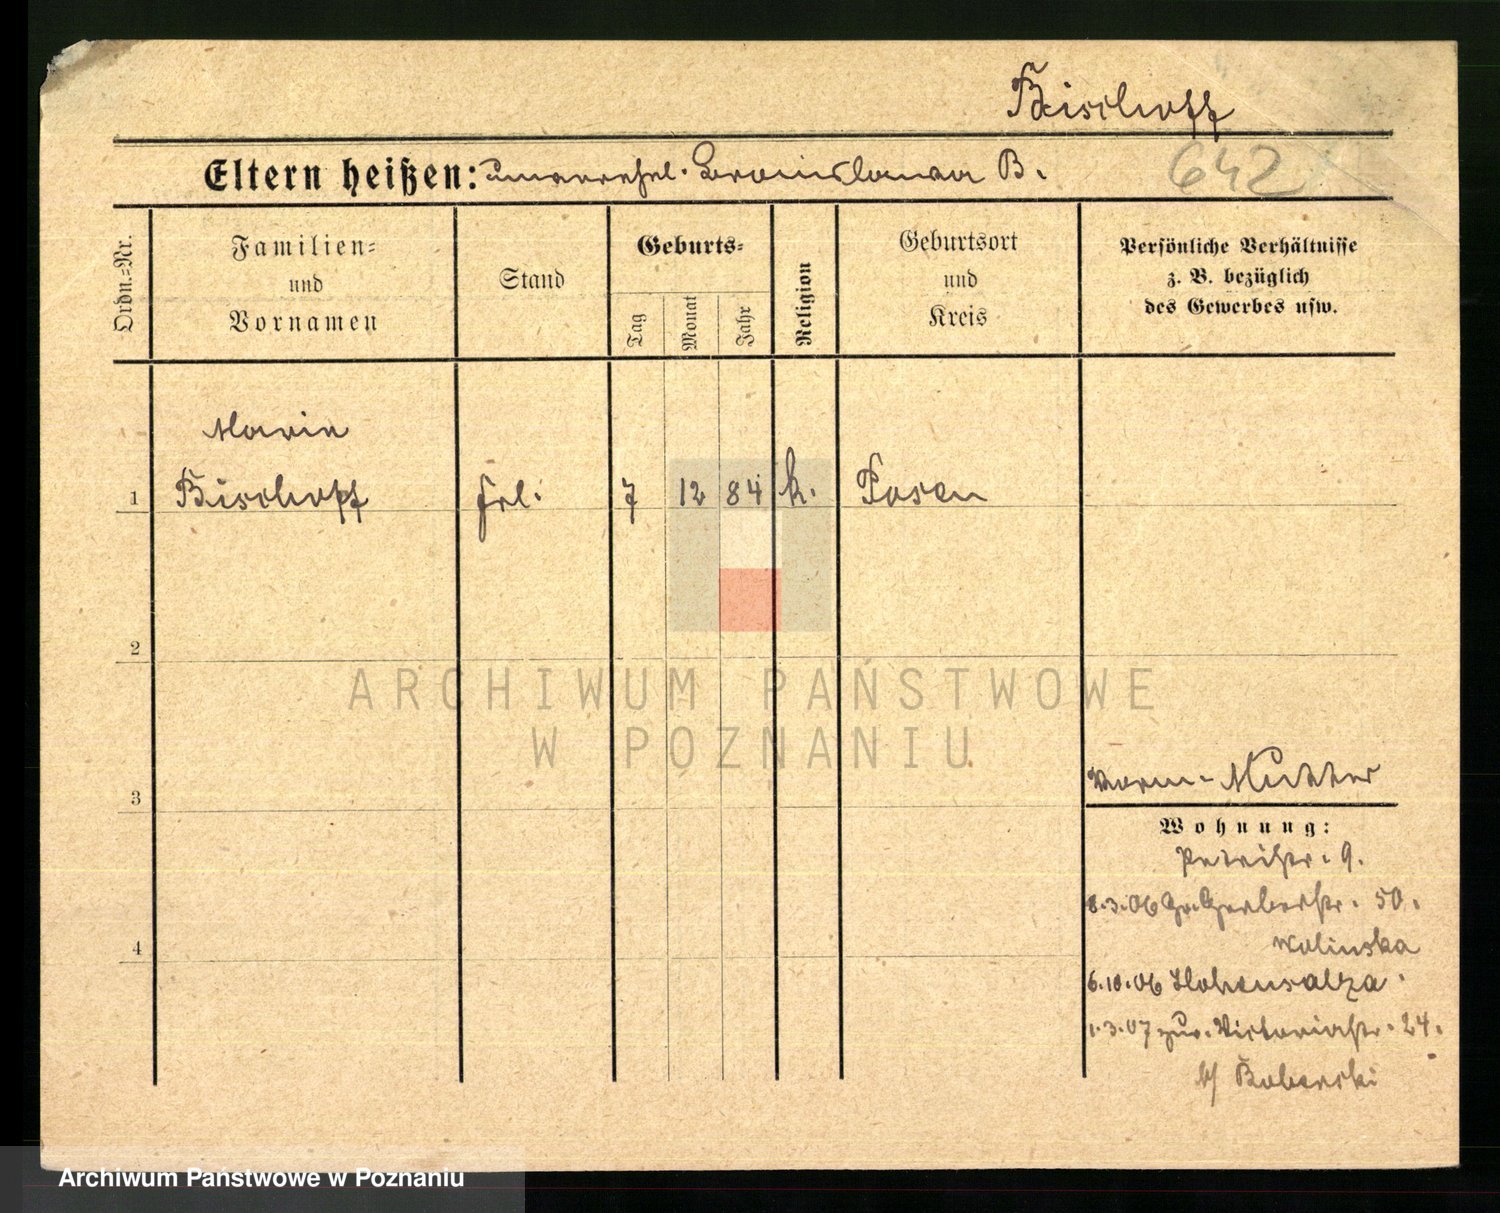 Bischoff
Eltern heißen: unverehel. Bronislawa B.
642
Ordn.=Nr.
Familien=
und
Vornamen
Stand
Geburts=
Tag
Monat
Jahr
Religion
Geburtsort
und
Kreis
Persönliche Verhältnisse
z. B. bezüglich
des Gewerbes usw.
Marie
1 Bischoff Frl. 7 12 84 k. Posen
2
ARCHIWUM PAŃSTWOWE
W POZNANIU
3
Mutter
Wohnung:
Petristr. 9.
8.3.06 Gr. Gerberstr. 50.
Wolinska
6.10.06 Hohensalza
4
1.3.07 zur. Victoriastr. 24.
b/ Boberski
Archiwum Państwowe w Poznaniu